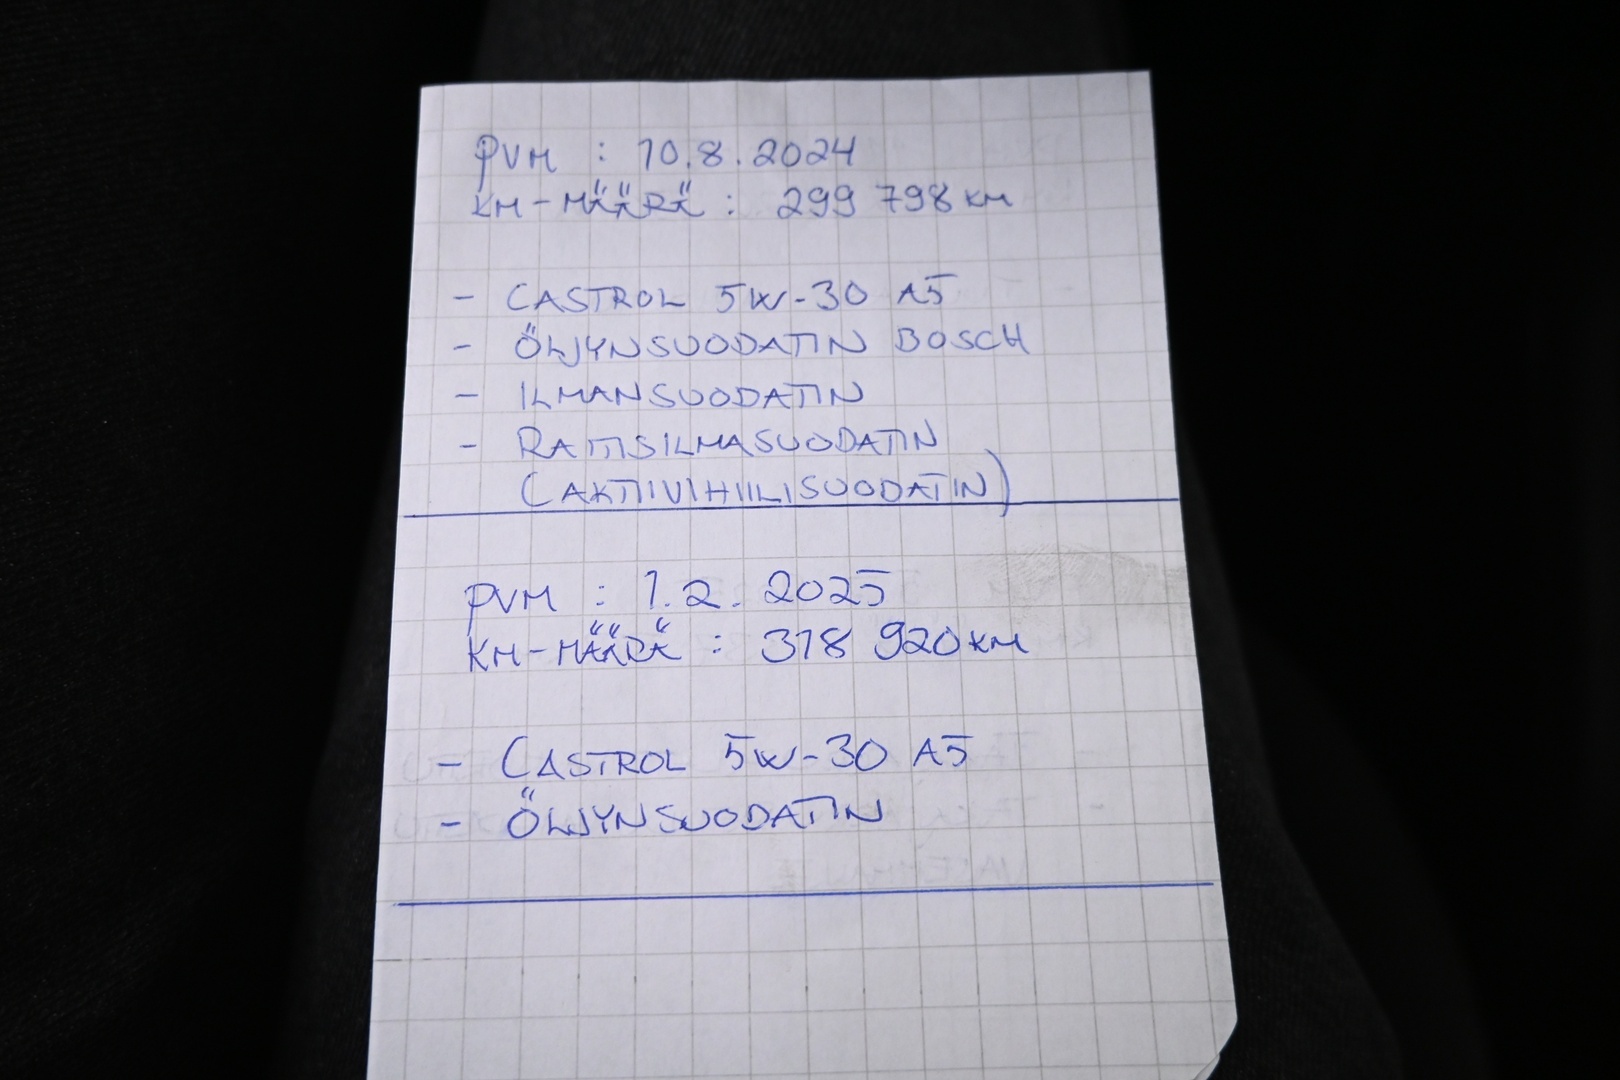 PVM : 10.8.2024
KM-MÄÄRÄ : 299 798 KM
- CASTROL 5W-30 A5
- ÖLJYNSUODATIN BOSCH
- ILMANSUODATIN
- RAITISILMASUODATIN
(AKTIIVIHIILISUODATIN)
PVM : 1.2.2025
KM-MÄÄRÄ : 318 920 KM
- CASTROL 5W-30 A5
- ÖLJYNSUODATIN